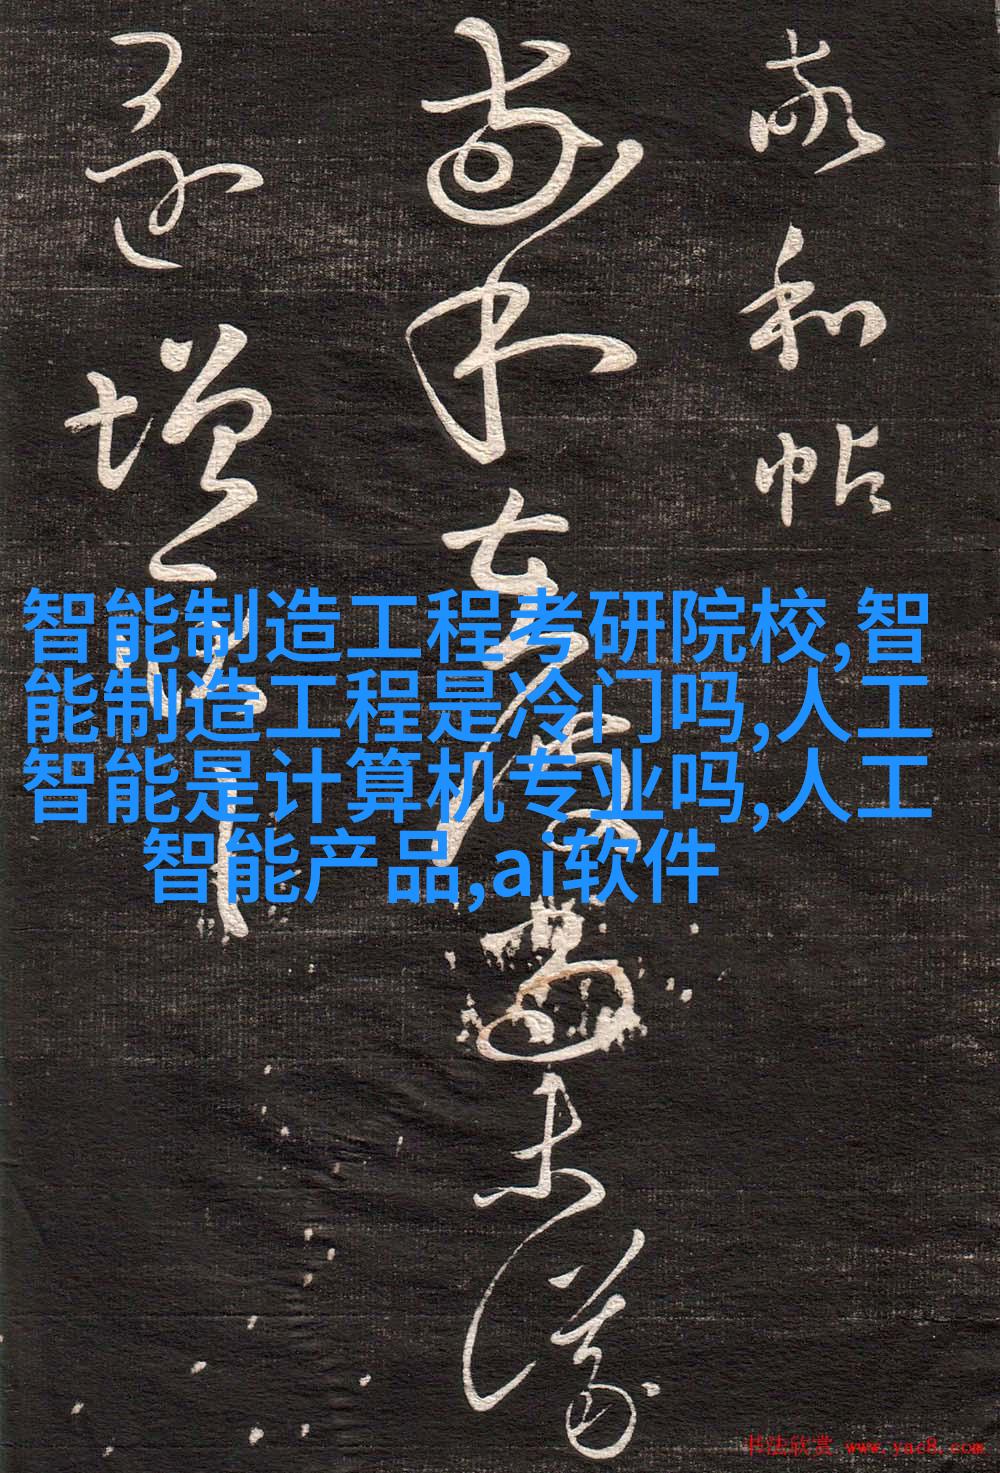 敬和帖
敬和在彼尚未議
還增
智能制造工程考研院校,智
能制造工程是冷门吗,人工
智能是计算机专业吗,人工
智能产品,ai软件
书法欣赏 www.yac8.com